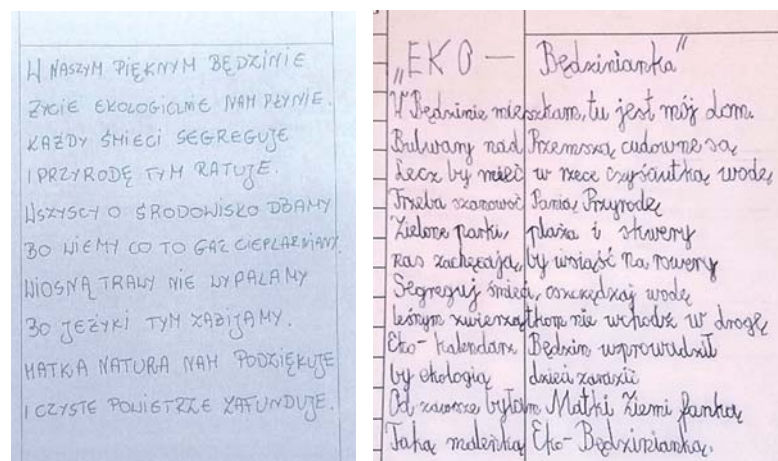 W NASZYM PIĘKNYM BĘDZINIE
ŻYCIE EKOLOGICZNIE NAM PŁYNIE.
KAŻDY ŚMIECI SEGREGUJE
I PRZYRODĘ TYM RATUJE.
WSZYSCY O ŚRODOWISKO DBAMY
BO WIEMY CO TO GAZ CIEPLARNIANY.
WIOSNĄ TRAWY NIE WYPALAMY
BO JEŻYKI TYM ZABIJAMY.
MATKA NATURA NAM PODZIĘKUJE
I CZYSTE POWIETRZE ZAFUNDUJE.
„EKO — Będzinianka"
W Będzinie mieszkam, tu jest mój dom.
Bulwary nad Przemszą cudowne są
Lecz by mieć w rzece czyściutką wodę
Trzeba szanować Panią Przyrodę
Zielone parki, plaża i skwery
nas zachęcają, by wsiąść na rowery
Segreguj śmieci, oszczędzaj wodę
leśnym zwierzątkom nie wchodź w drogę
Eko-kalendarz Będzin wprowadził
by ekologią dzieci zarazić
Od zawsze byłam Matki Ziemi fanką
Taką maleńką Eko-Będzinianką.